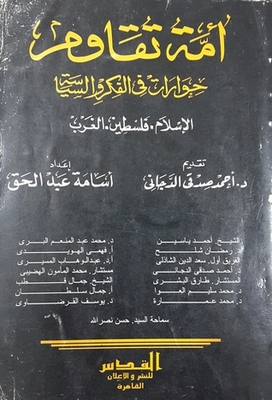 أمة تقاوم
حوارات في الفكر والسياسة
الإسلام . فلسطين . الغرب
تقديم
د. أحمد صدقي الدجاني
إعداد
أسامة عبد الحق
الشيخ. أحمد ياسين
د. محمد عبد المنعم البري
د. رمضان شلح
أ. فهمي هويدي
الفريق أول. سعد الدين الشاذلي
أ.د. عبد الوهاب المسيري
د. أحمد صدقي الدجاني
مستشار. محمد المأمون الهضيبي
مستشار. طارق البشري
الشيخ. جمال قطب
د. محمد سليم العوا
أ. جمال سلطان
د. محمد عمارة
د. يوسف القرضاوي
سماحة السيد. حسن نصر الله
القدس
للنشر والإعلان
القاهرة